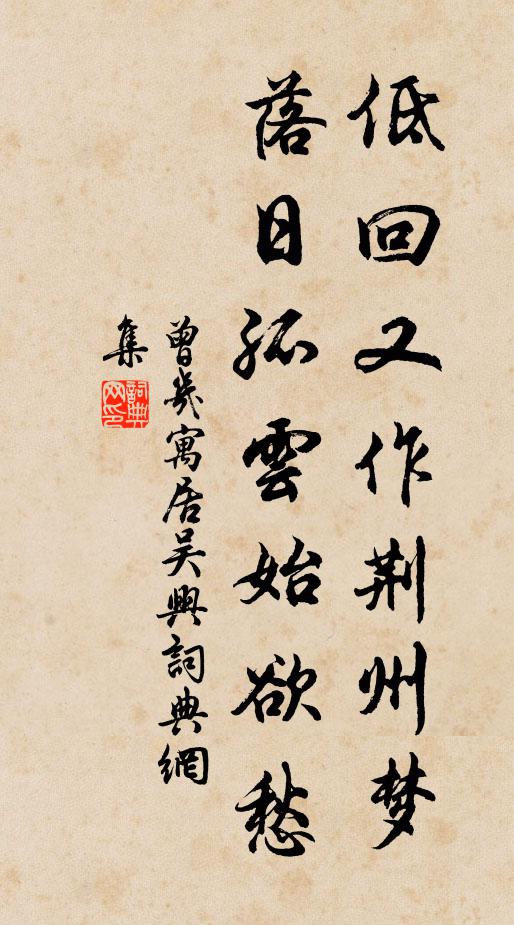 低回又作荆州梦
落日孤雲始欲愁
曾幾寓居吴興詞典網
集
詞典网印